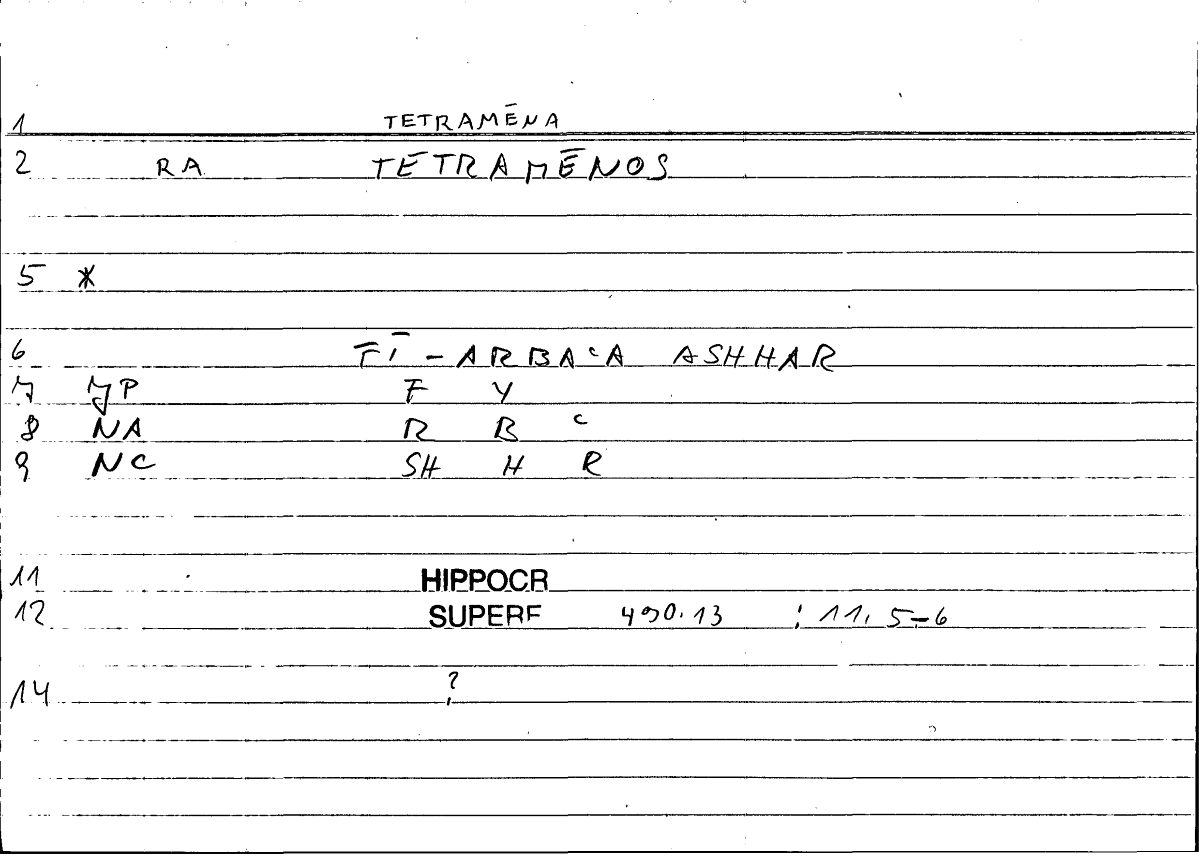 1 TETRAMĒNA
2 RA TETRAMĒNOS
5 *
6 FĪ-ARBAᶜA ASHHAR
7 JP F Y
8 NA R B ᶜ
9 NC SH H R
11 HIPPOCR
12 SUPERF 490.13 : 11, 5-6
14 ?